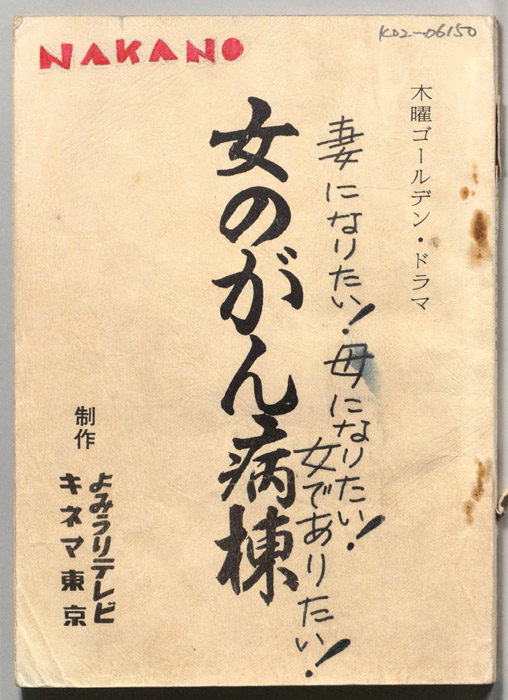 NAKANO
K02-06150
木曜ゴールデン・ドラマ
妻になりたい!母になりたい!
女でありたい!
女のがん病棟
制作
よみうりテレビ
キネマ東京